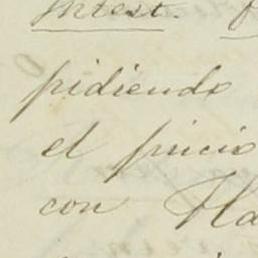 Intest.
pidiendo
el juicio
con Ha